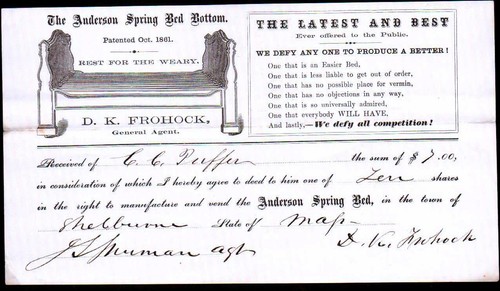 The Anderson Spring Bed Bottom.
Patented Oct. 1861.
REST FOR THE WEARY.
D. K. FROHOCK,
General Agent.
THE LATEST AND BEST
Ever offered to the Public.
WE DEFY ANY ONE TO PRODUCE A BETTER!
One that is an Easier Bed,
One that is less liable to get out of order,
One that has no possible place for vermin,
One that has no objections in any way,
One that is so universally admired,
One that everybody WILL HAVE,
And lastly,—We defy all competition!
Received of C. C. the sum of $ 7.00,
in consideration of which I hereby agree to deed to him one of Ten shares
in the right to manufacture and vend the Anderson Spring Bed, in the town of
Shelburne State of Mass
agt D. K. Frohock